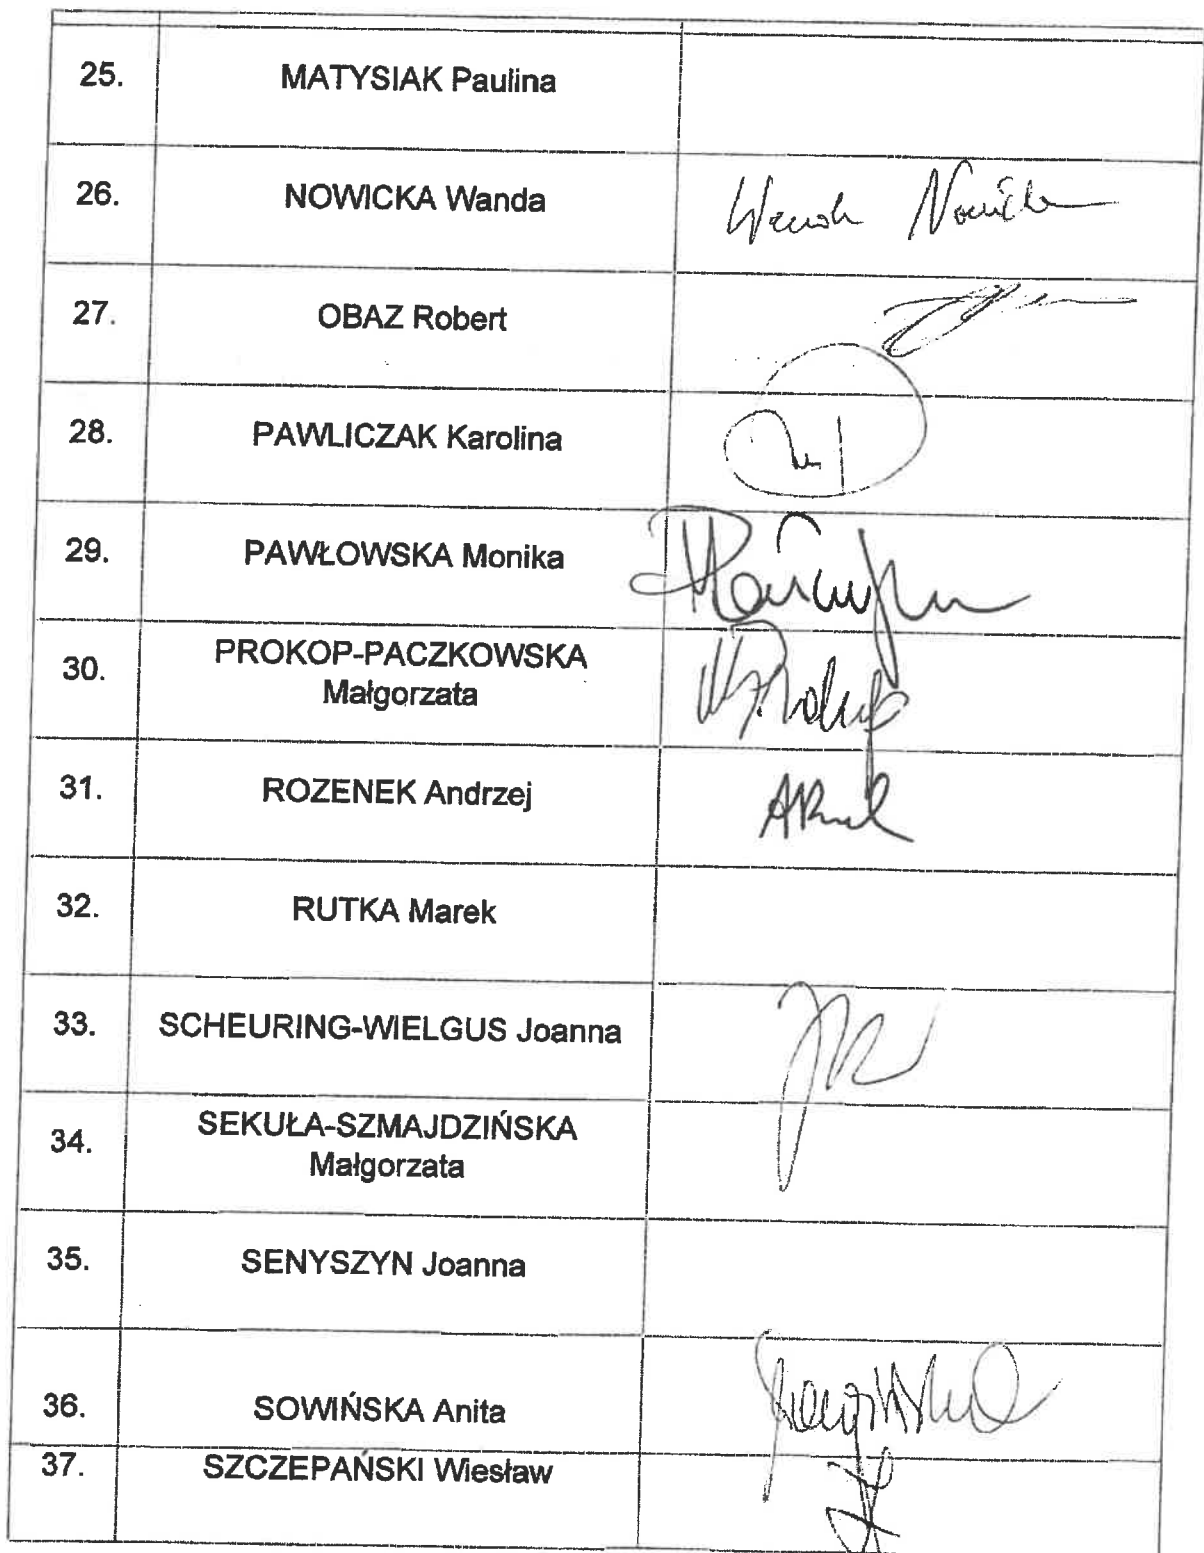 25. MATYSIAK Paulina
26. NOWICKA Wanda Wanda Nowicka
27. OBAZ Robert
28. PAWLICZAK Karolina
29. PAWŁOWSKA Monika
30. PROKOP-PACZKOWSKA
Małgorzata
31. ROZENEK Andrzej
32. RUTKA Marek
33. SCHEURING-WIELGUS Joanna
34. SEKUŁA-SZMAJDZIŃSKA
Małgorzata
35. SENYSZYN Joanna
36. SOWIŃSKA Anita
37. SZCZEPAŃSKI Wiesław